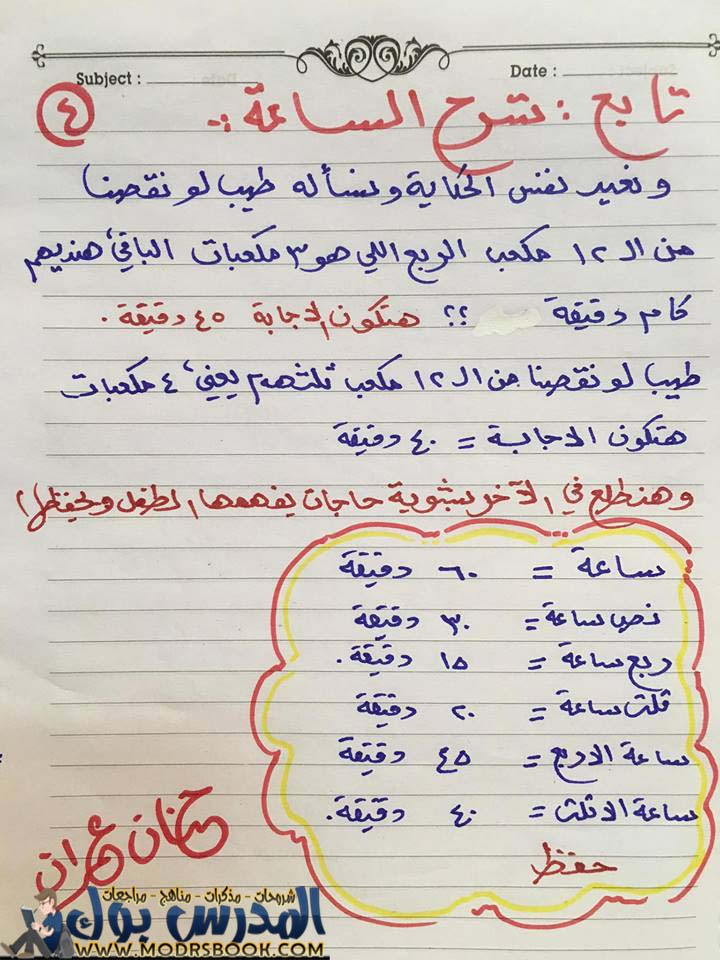 Subject :
Date :
٤
تابع : شرح الساعة :-
ونغير نفس الحكاية ونسأله طيب لو نقصنا
من الـ ١٢ مكعب الربع اللي هو ٣ مكعبات الباقي هنديهم
كام دقيقة ؟؟ هتكون الاجابة ٤٥ دقيقة .
طيب لو نقصنا من الـ ١٢ مكعب ثلثهم يعني ٤ مكعبات
هتكون الاجابة = ٤٠ دقيقة
وهنطلع في الآخر بشوية حاجات يفهمها الطفل ويحفظها
ساعة = ٦٠ دقيقة
نص ساعة = ٣٠ دقيقة
ربع ساعة = ١٥ دقيقة .
ثلث ساعة = ٢٠ دقيقة
ساعة الاربع = ٤٥ دقيقة
ساعة الاثلث = ٤٠ دقيقة .
حفظ
حنان عمران
شروحات - مذكرات - مناهج - مراجعات
المدرس بوك
WWW.MODRSBOOK.COM